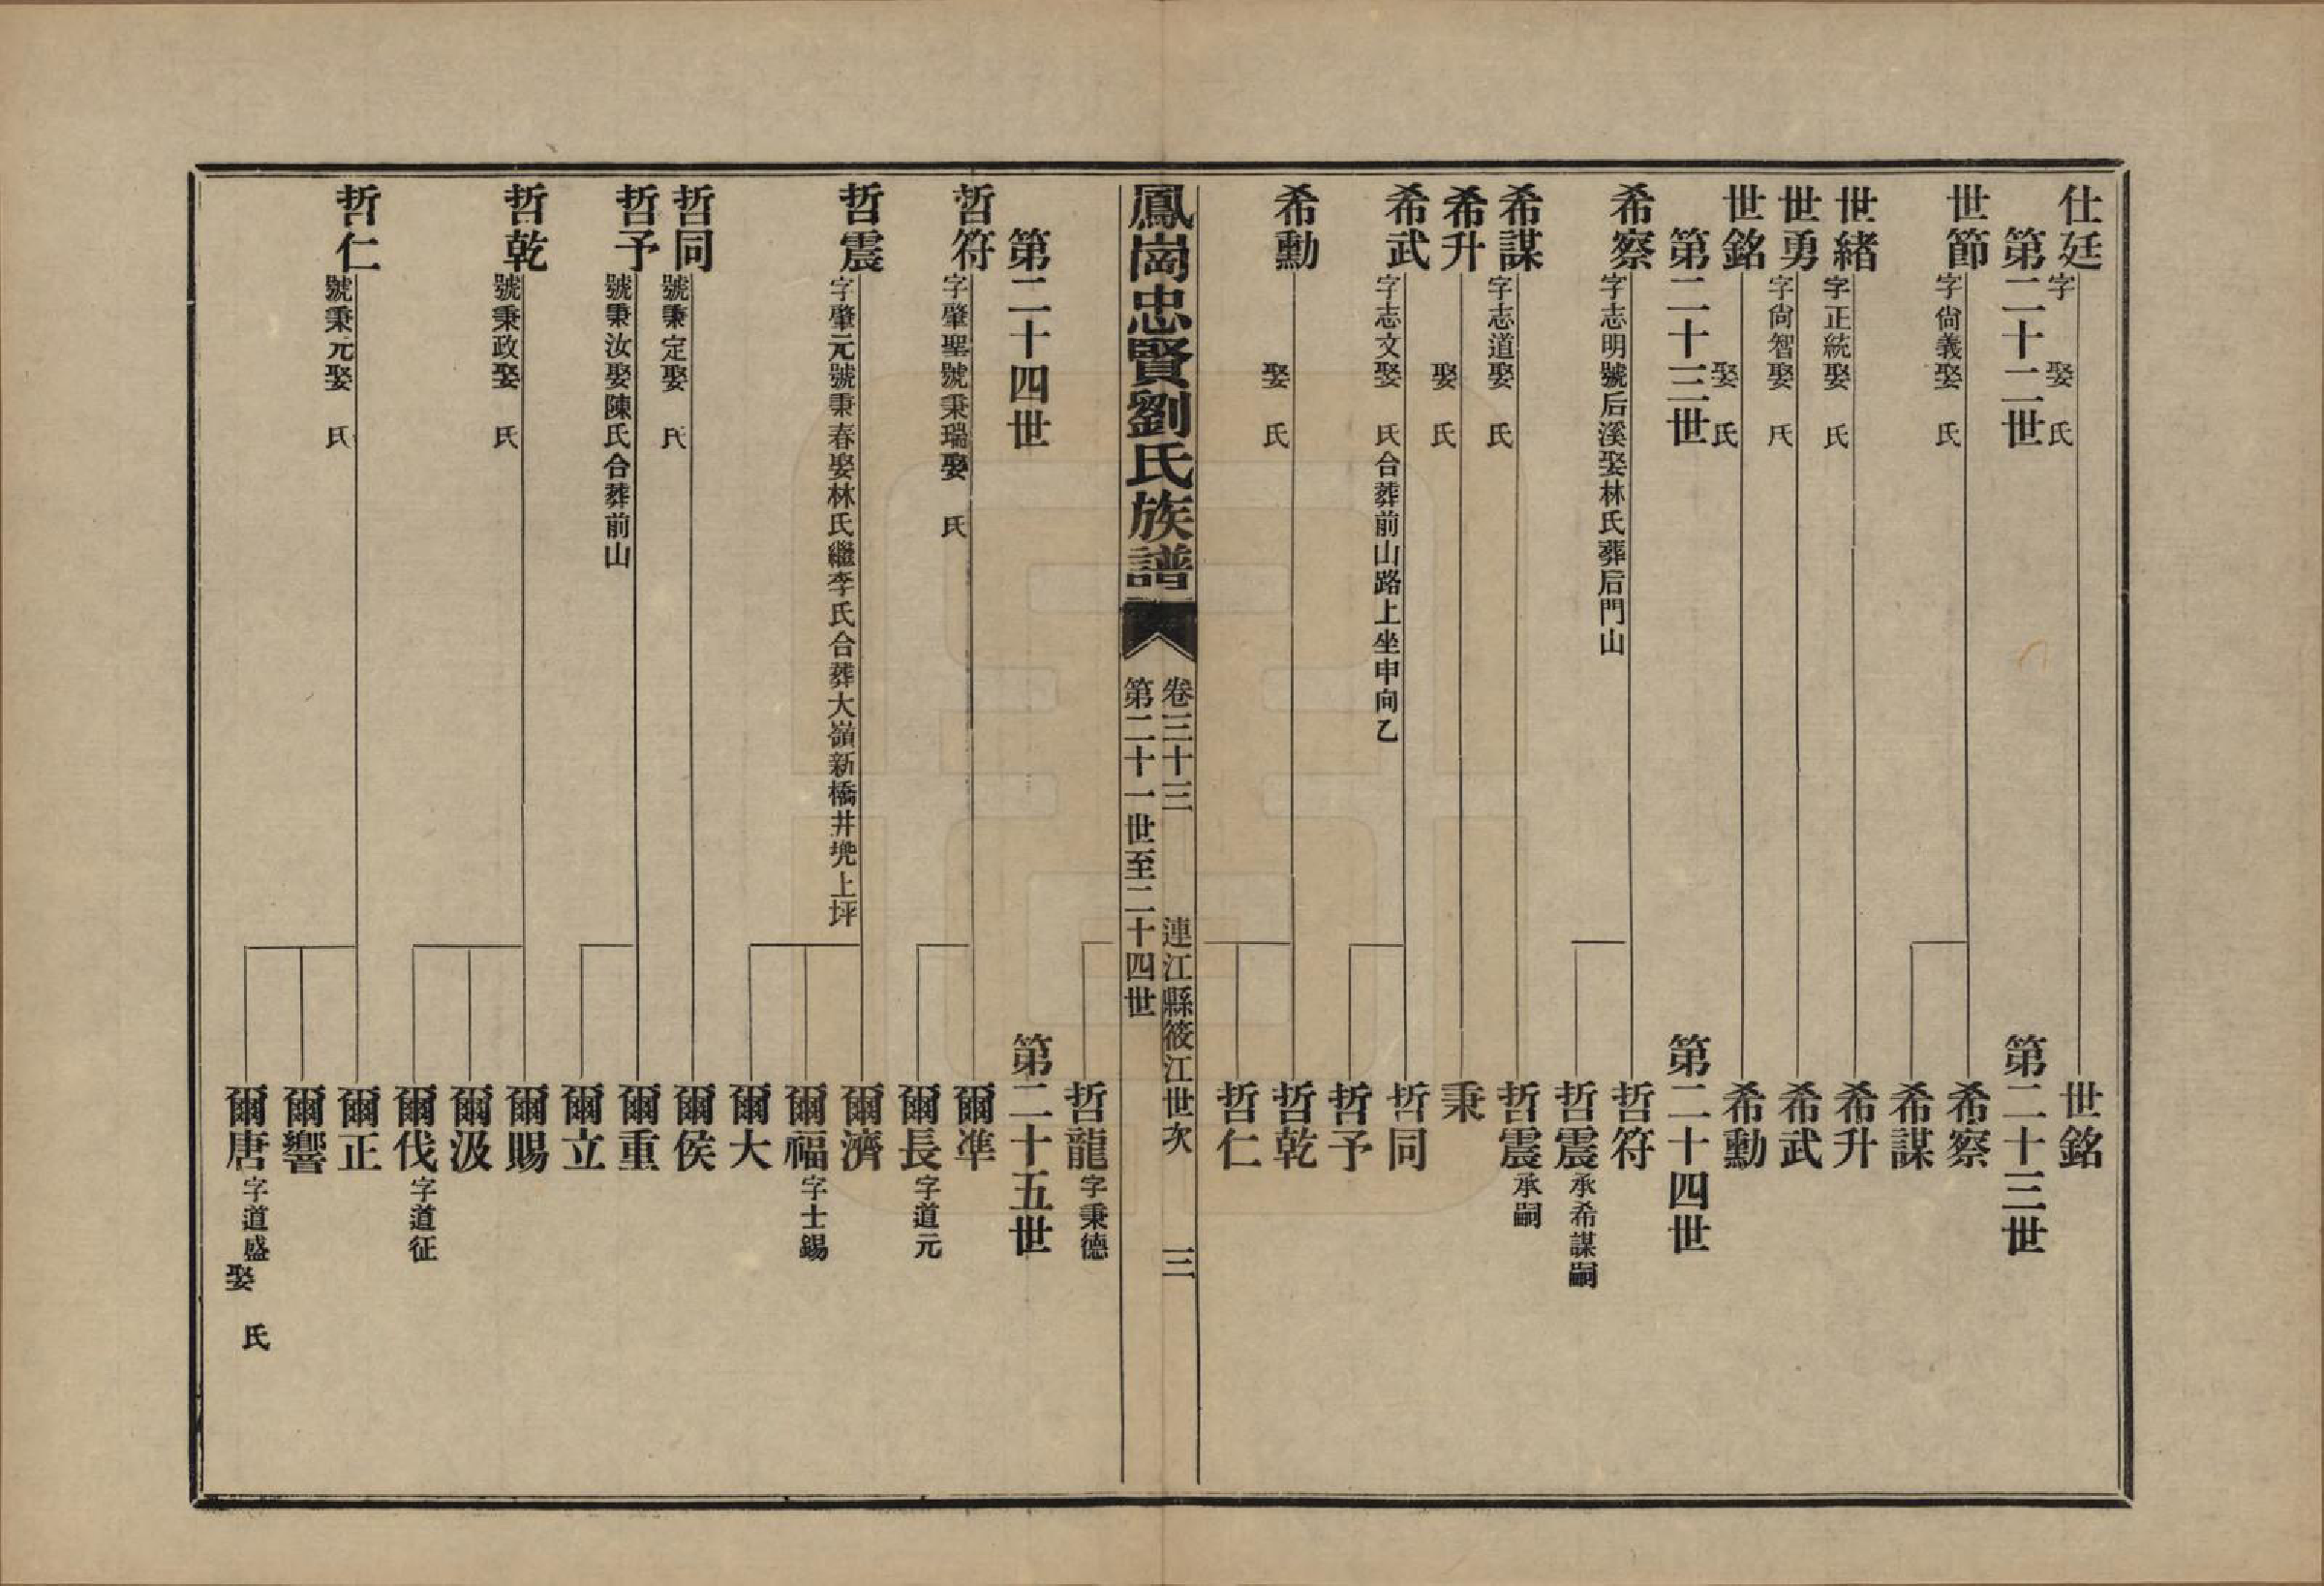 仕廷　字　娶　氏　世銘
第二十二世　第二十三世
世節　字尙義娶　氏　希察
希謀
世緒　字正統娶　氏　希升
世勇　字尙智娶　氏　希武
世銘　娶　氏　希勳
第二十三世　第二十四世
希察　字志明號后溪娶林氏葬后門山　哲符
哲震　承希謀嗣
希謀　字志道娶　氏　哲震　承嗣
希升　娶　氏　秉
希武　字志文娶　氏合葬前山路上坐申向乙　哲同
哲予
希勳　娶　氏　哲乾
哲仁
鳳崗忠賢劉氏族譜
卷三十三　連江縣筱江世次　三
第二十一世至二十四世
哲龍　字秉德
第二十四世　第二十五世
哲符　字肇聖號秉瑞娶　氏　爾準
爾長　字道元
哲震　字肇元號秉春娶林氏繼李氏合葬大嶺新橋井兠上坪　爾濟
爾福　字士錫
爾大
哲同　號秉定娶　氏　爾侯
哲予　號秉汝娶陳氏合葬前山　爾重
爾立
哲乾　號秉政娶　氏　爾賜
爾汲
爾伐　字道征
哲仁　號秉元娶　氏　爾正
爾響
爾唐　字道盛娶　氏